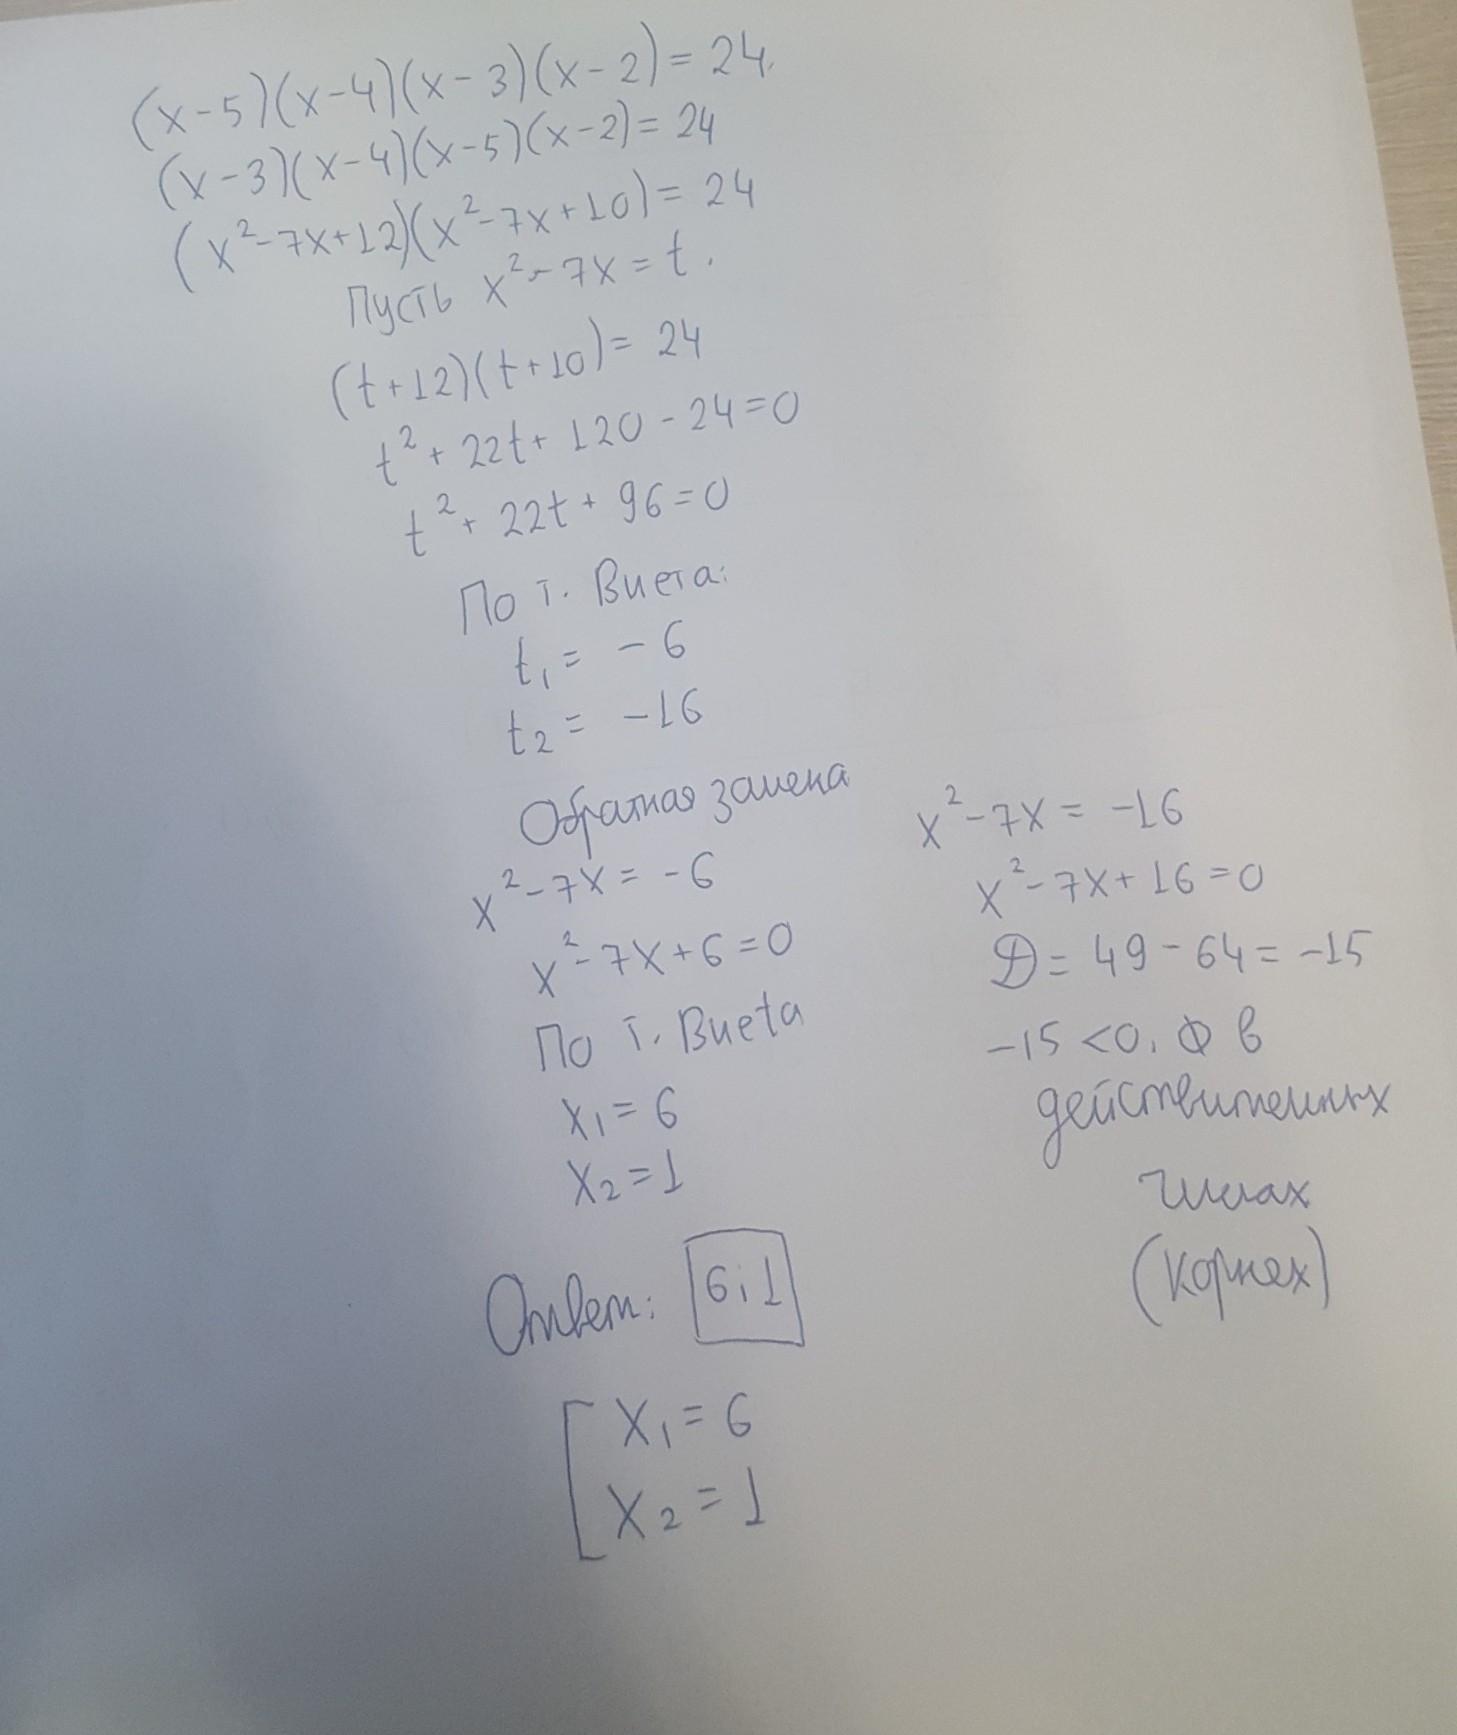 (x-5)(x-4)(x-3)(x-2)=24.
(x-3)(x-4)(x-5)(x-2)=24
(x²-7x+12)(x²-7x+10)=24
Пусть x²-7x=t.
(t+12)(t+10)=24
t²+22t+120-24=0
t²+22t+96=0
По т. Виета:
t₁=-6
t₂=-16
Обратная замена
x²-7x=-6
x²-7x+6=0
По т. Виета
x₁=6
x₂=1
x²-7x=-16
x²-7x+16=0
D=49-64=-15
-15<0, Ф в
действительных
числах
(корнях)
Ответ: 6;1
[ x₁=6
x₂=1